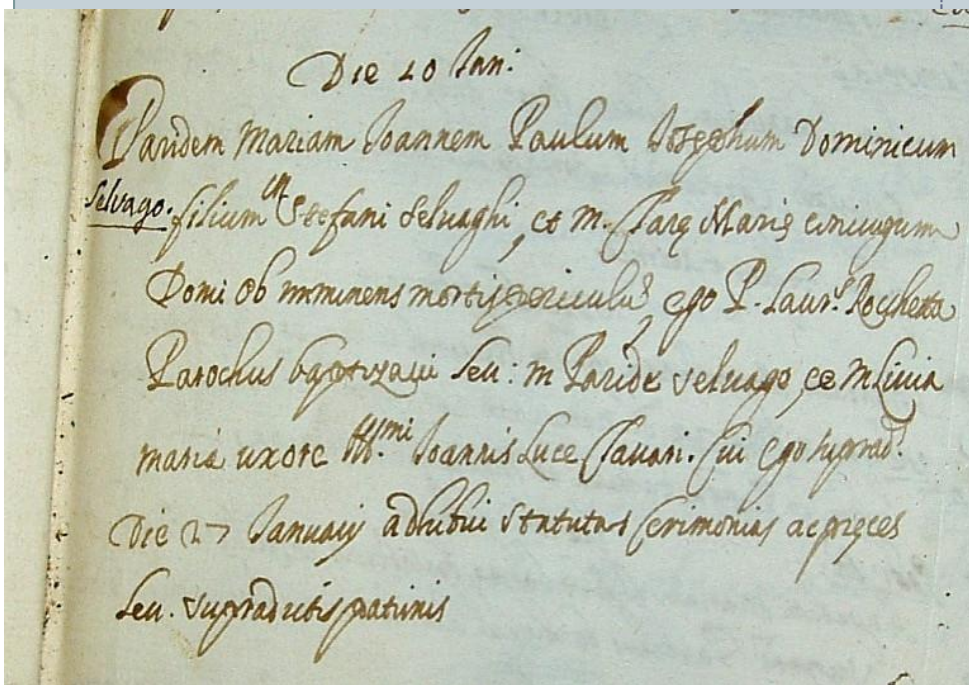 Die 20 Jan:
Paridem Mariam Joannem Paulum Josephum Dominicum
Selvago. filium m Stefani Selvaghi, et m. Clarę Marię coniugum
Domi ob imminens mortis periculũ, ego P. Laur.s Rocchetta
Parochus baptizavi Lev: m Paride Selvago, et m Livia
maria uxore Ill.mi Joannis Luce Chiavari. Cui ego suprad.s
Die 27 Januarij adhibui statutas Cerimonias ac pręces
Lev. supradictis patrinis